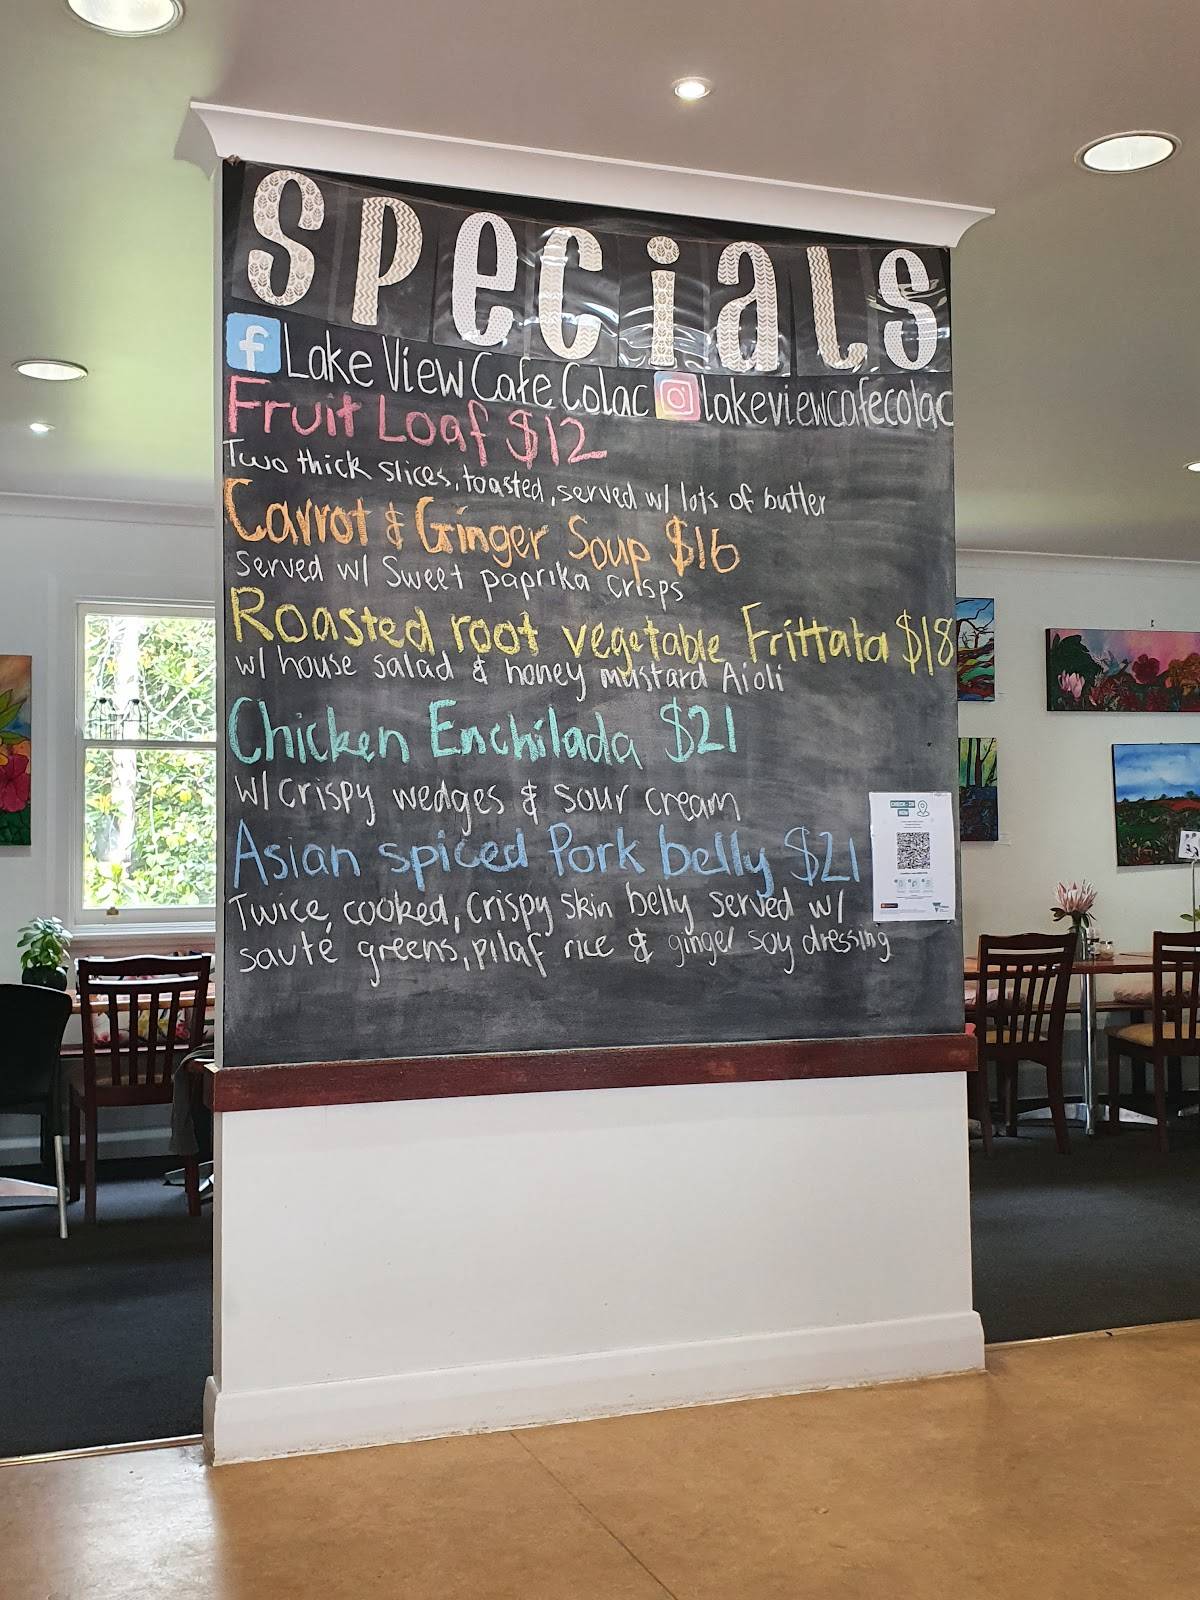 Specials
Lake View Cafe Colac lakeviewcafecolac
Fruit Loaf $12
Two thick slices, toasted, served w/ lots of butter
Carrot & Ginger Soup $16
Served w/ Sweet paprika crisps
Roasted root vegetable Frittata $18
w/ house salad & honey mustard Aioli
Chicken Enchilada $21
w/ crispy wedges & sour cream
Asian spiced Pork belly $21
Twice, cooked, crispy skin belly served w/
sauté greens, pilaf rice & ginger soy dressing